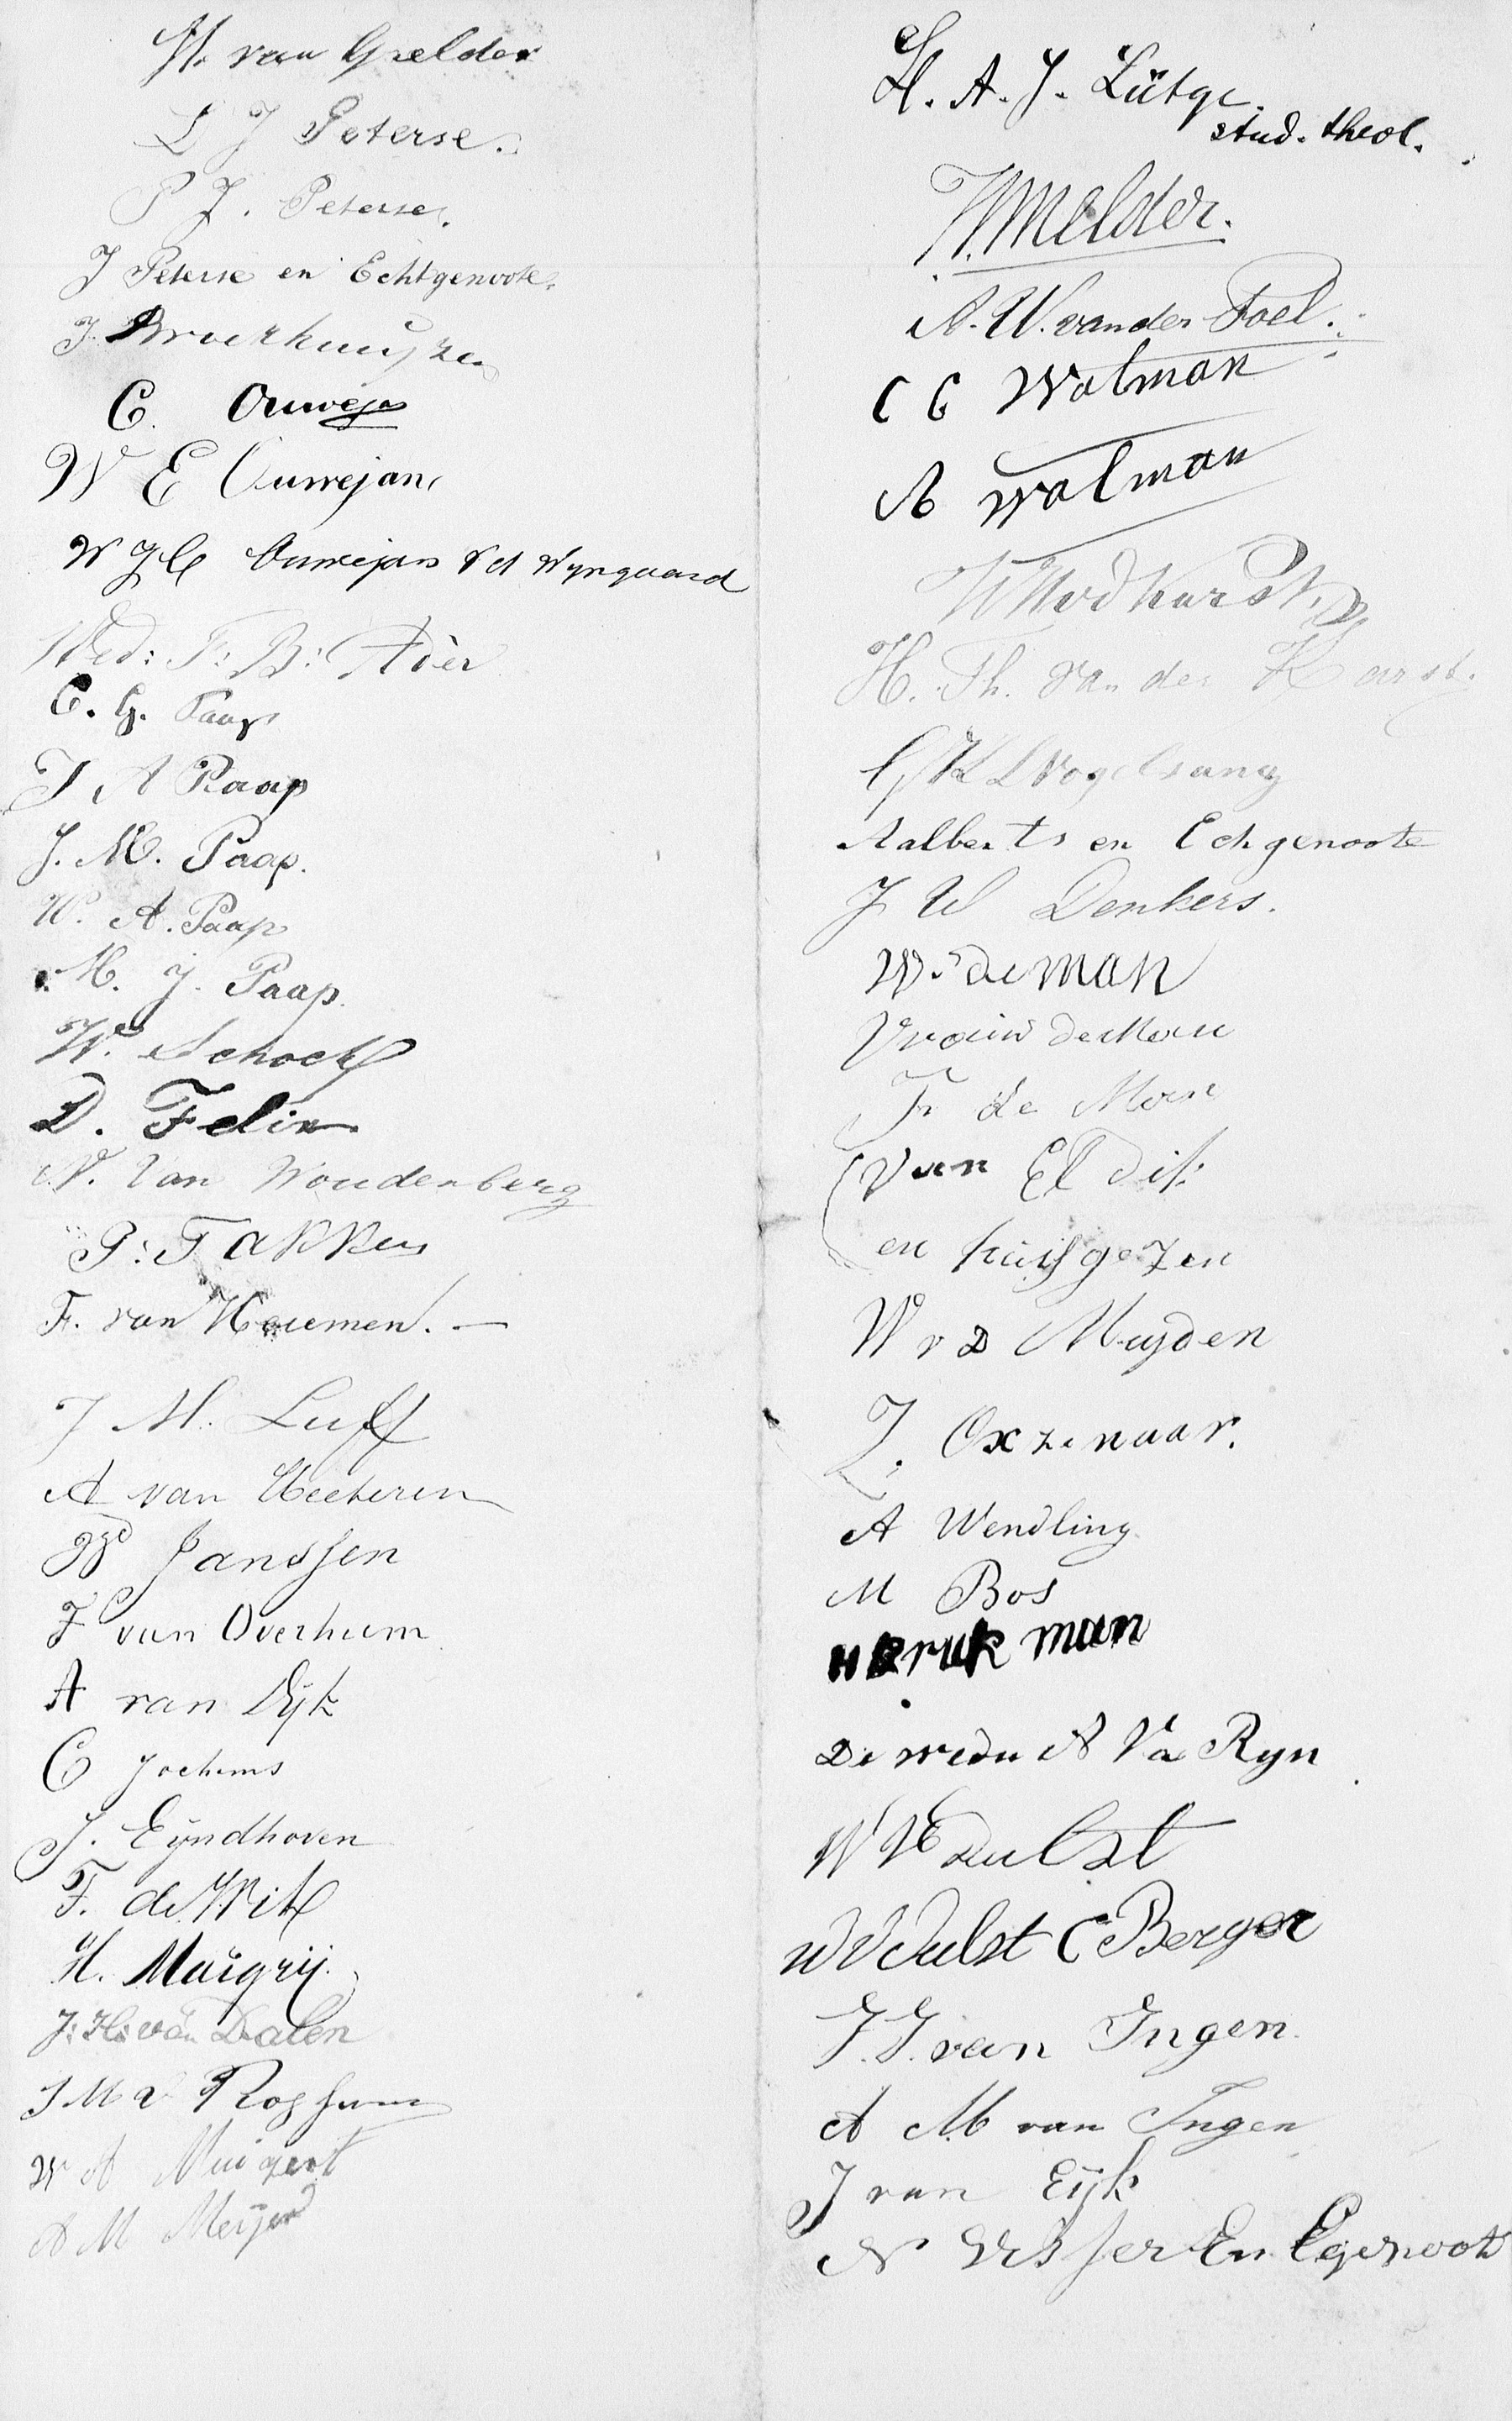 H. van Gelder
L J Peterse.
P J. Peterse.
J Peterse en Echtgenoote.
J. Broekhuijzen
C. Ouwejan
W E Ouwejan
W J C Ouwejan v d Wyngaard
Wed: F: B: Adèr
C. G. Paap
J A Paap
J. M. Paap.
W. A. Paap
M. J. Paap.
W. Schock
D. Felix
N. Van Woudenberg
P: Takken
F. van Heumen. —
J M. Luff
A van Heeteren
W Janssen
J van Overhem
A van Dyk
C Jochems
J. Eijndhoven
F. de Wit
H. Murgrij.
J: H: van Dalen
J M v Roshum
W A
A M Meijer
H. A. J. Lütge.
stud. theol.
W. Melder.
A. W. van der Poel.
C C Walman
A Walman
W v d Karst
H. Th. van der Karst.
G K L Vogelsang
Aalberts en Echgenoote
J W Denkers.
W. de Man
Vrouw de Man
Fr de Man
Van El Dik
en huisgezen
W v D Muijden
J. Oxzenaar.
A Wendling
M Bos
H Brukman
De wedu A Van Ryn
W V Dulst
W V Dulst C Berger
J. J. van Ingen.
A M van Ingen
J van Eijk
N Visser En Egenoote